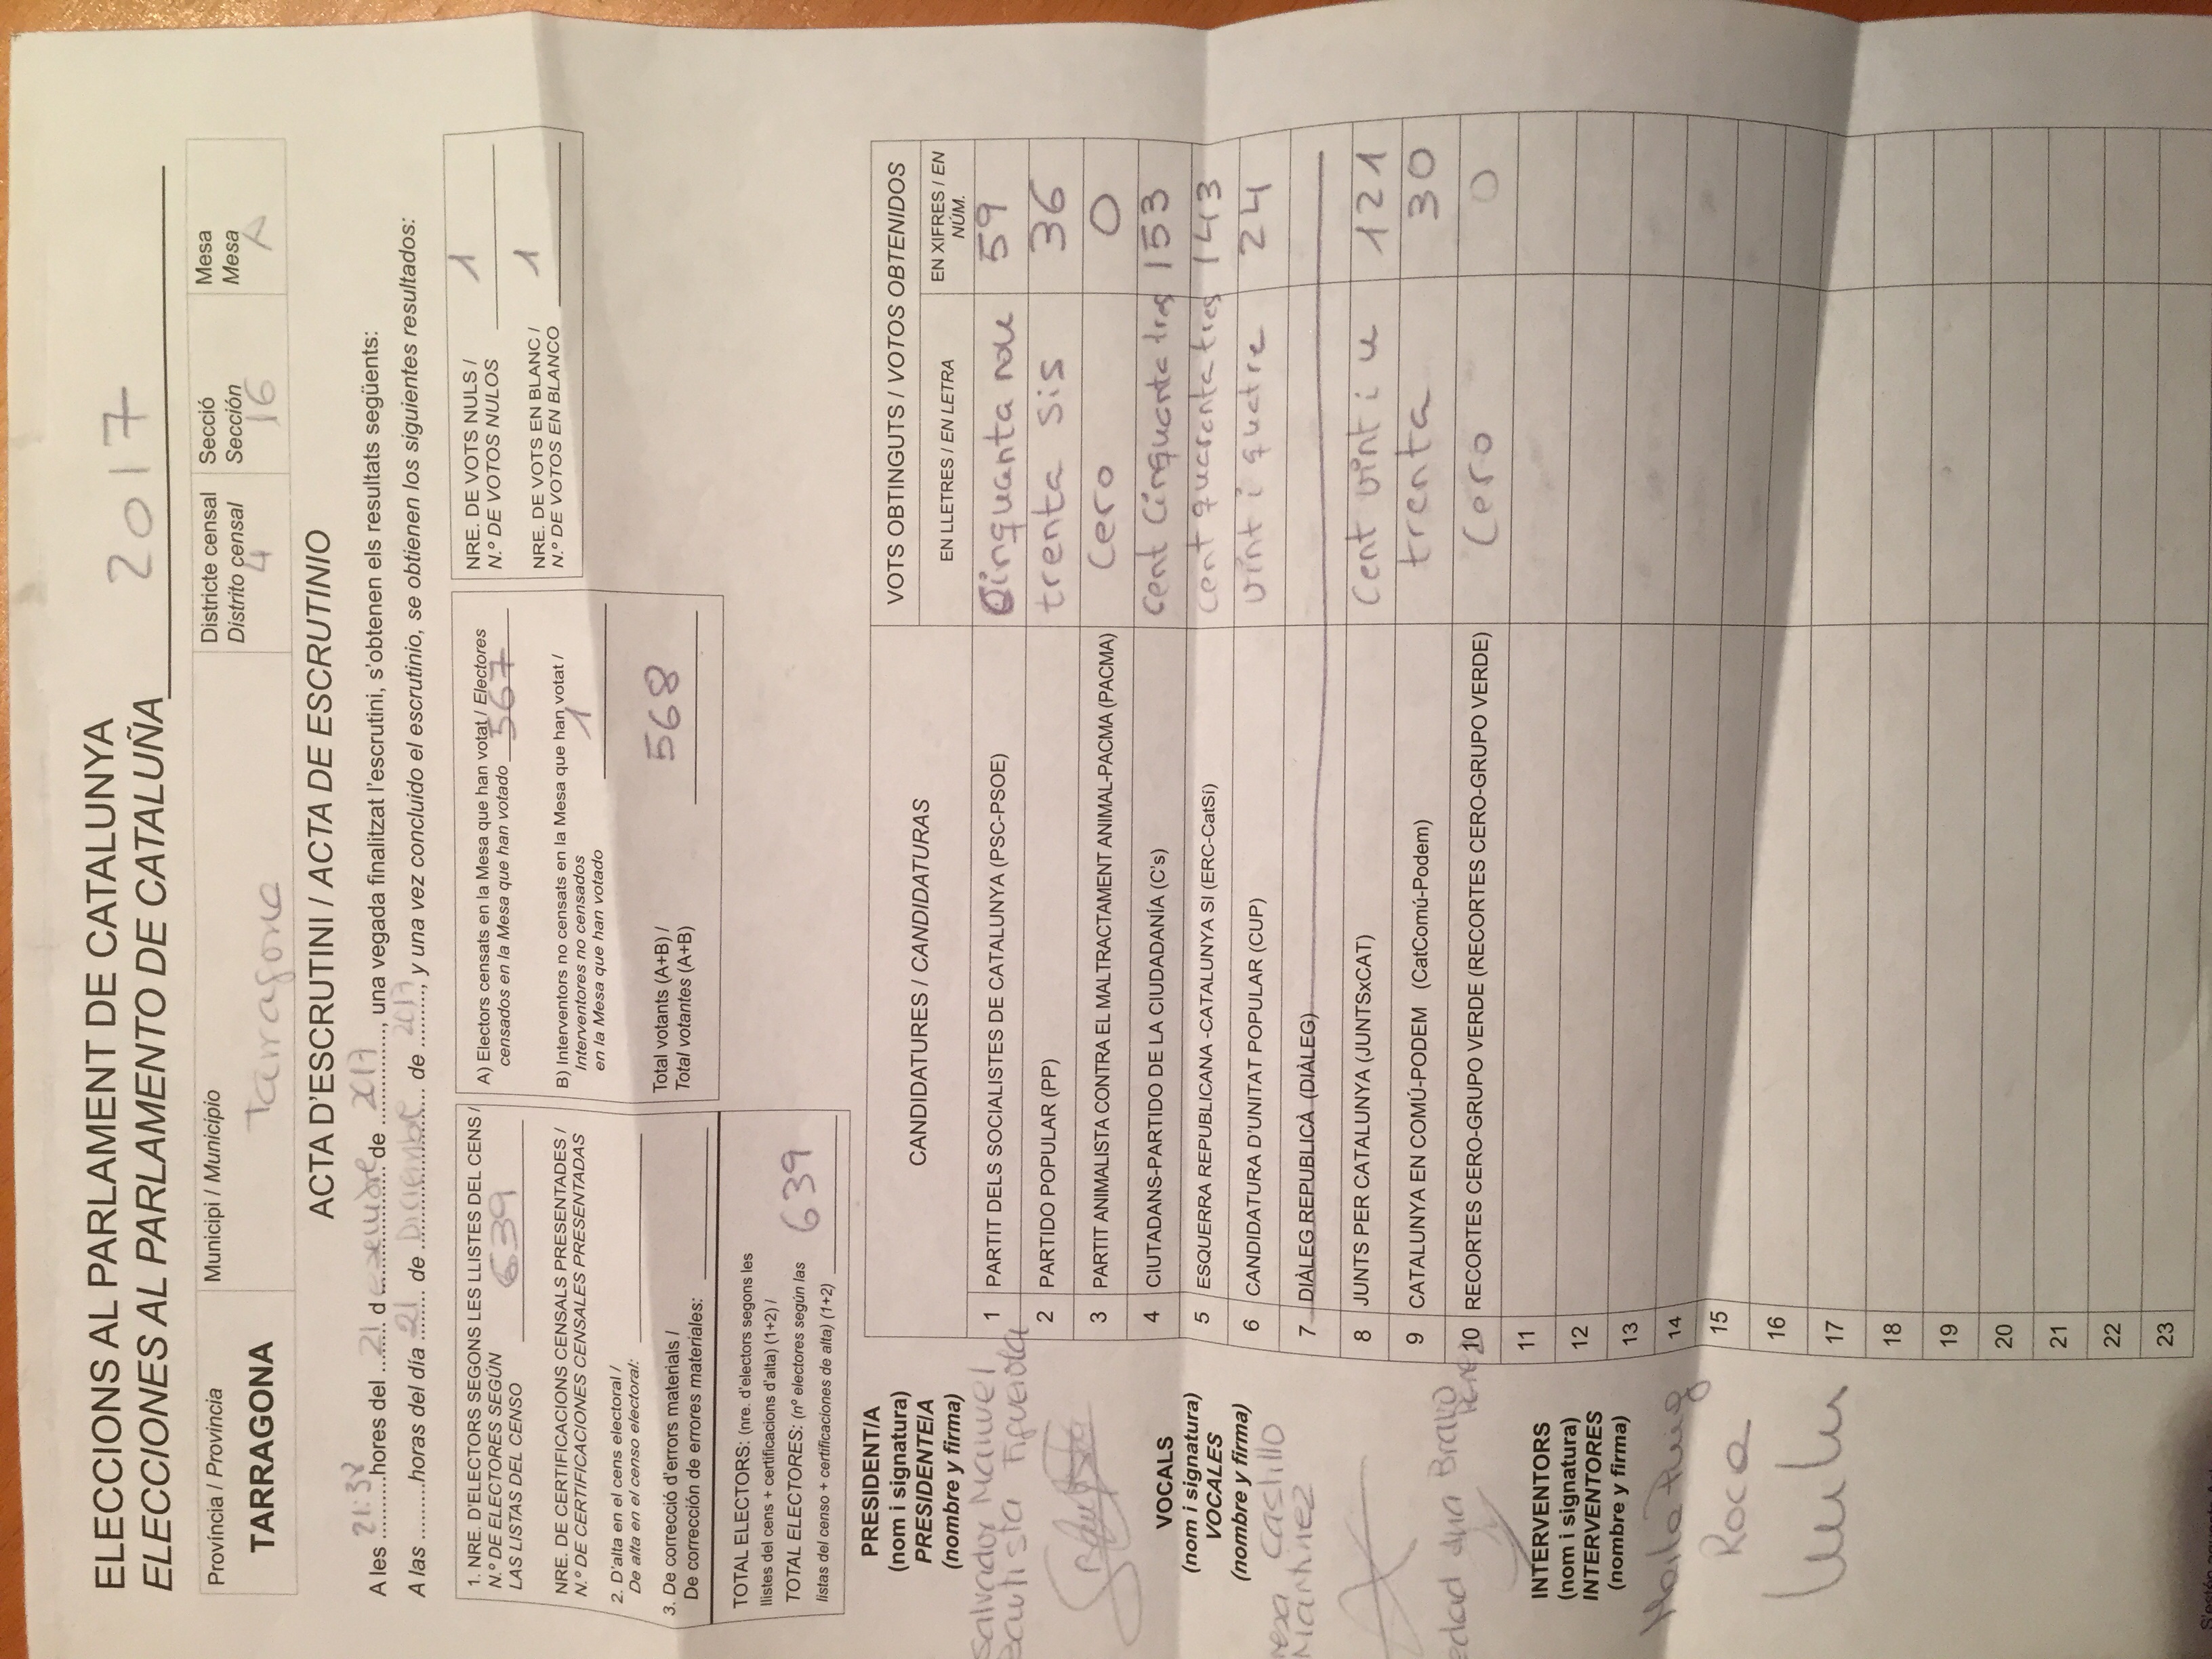 ELECCIONS AL PARLAMENT DE CATALUNYA
ELECCIONES AL PARLAMENTO DE CATALUÑA 2017
Província / Provincia
TARRAGONA
Municipi / Municipio
Tarragona
Districte censal
Distrito censal
4
Secció
Sección
16
Mesa
Mesa
A
ACTA D'ESCRUTINI / ACTA DE ESCRUTINIO
A les 21:38 hores del 21 d esembre de 2017, una vegada finalitzat l'escrutini, s'obtenen els resultats següents:
A las .........horas del día 21 de Diciembre de 2017, y una vez concluido el escrutinio, se obtienen los siguientes resultados:
1. NRE. D'ELECTORS SEGONS LES LLISTES DEL CENS /
N.º DE ELECTORES SEGÚN
LAS LISTAS DEL CENSO 639
NRE. DE CERTIFICACIONS CENSALS PRESENTADES /
N.º DE CERTIFICACIONES CENSALES PRESENTADAS
2. D'alta en el cens electoral /
De alta en el censo electoral:
3. De correcció d'errors materials /
De corrección de errores materiales:
TOTAL ELECTORS: (nre. d'electors segons les
llistes del cens + certificacions d'alta) (1+2) /
TOTAL ELECTORES: (nº electores según las
listas del censo + certificaciones de alta) (1+2) 639
A) Electors censats en la Mesa que han votat / Electores
censados en la Mesa que han votado 567
B) Interventors no censats en la Mesa que han votat /
Interventores no censados
en la Mesa que han votado 1
Total votants (A+B) /
Total votantes (A+B) 568
NRE. DE VOTS NULS /
N.º DE VOTOS NULOS 1
NRE. DE VOTS EN BLANC /
N.º DE VOTOS EN BLANCO 1
PRESIDENT/A
(nom i signatura)
PRESIDENTE/A
(nombre y firma)
Salvador Manuel
Bautista Figuerola
VOCALS
(nom i signatura)
VOCALES
(nombre y firma)
Castillo
Martinez
edad Ana Bravo
INTERVENTORS
(nom i signatura)
INTERVENTORES
(nombre y firma)
Puig
Roca
CANDIDATURES / CANDIDATURAS
VOTS OBTINGUTS / VOTOS OBTENIDOS
EN LLETRES / EN LETRA
EN XIFRES / EN
NÚM.
1 PARTIT DELS SOCIALISTES DE CATALUNYA (PSC-PSOE) Cinquanta nou 59
2 PARTIDO POPULAR (PP) trenta sis 36
3 PARTIT ANIMALISTA CONTRA EL MALTRACTAMENT ANIMAL-PACMA (PACMA) Cero 0
4 CIUTADANS-PARTIDO DE LA CIUDADANÍA (C's) cent Cinquanta tres 153
5 ESQUERRA REPUBLICANA -CATALUNYA SI (ERC-CatSí) cent quaranta tres 143
6 CANDIDATURA D'UNITAT POPULAR (CUP) vint i quatre 24
7 DIÀLEG REPUBLICÀ (DIÀLEG)
8 JUNTS PER CATALUNYA (JUNTSxCAT) Cent vint i u 121
9 CATALUNYA EN COMÚ-PODEM (CatComú-Podem) trenta 30
10 RECORTES CERO-GRUPO VERDE (RECORTES CERO-GRUPO VERDE) Cero 0
11
12
13
14
15
16
17
18
19
20
21
22
23